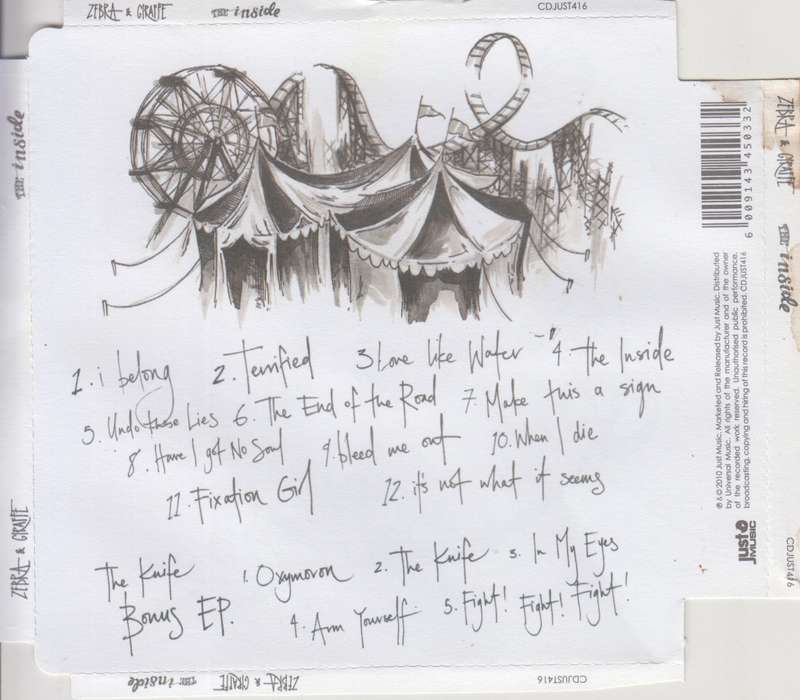 ZEBRA & GIRAFFE THE inside CDJUST416
THE inside
ZEBRA & GIRAFFE
1. i belong 2. Terrified 3. Love Like Water 4. The Inside
5. Undo these Lies 6. The End of the Road 7. Make this a sign
8. Have I got No Soul 9. bleed me out 10. When I die
11. Fixation Girl 12. it's not what it seems
The Knife 1. Oxymoron 2. The Knife 3. In My Eyes
Bonus EP. 4. Arm Yourself 5. Fight! Fight! Fight!
6 009143 450332
℗ & © 2010 Just Music. Marketed and Released by Just Music. Distributed
by Universal Music. All rights of the manufacturer and of the owner
of the recorded work reserved. Unauthorised public performance,
broadcasting, copying and hiring of this record is prohibited. CDJUST416
just MUSIC
ZEBRA & GIRAFFE THE inside CDJUST416
THE inside ZEBRA & GIRAFFE CDJUST416